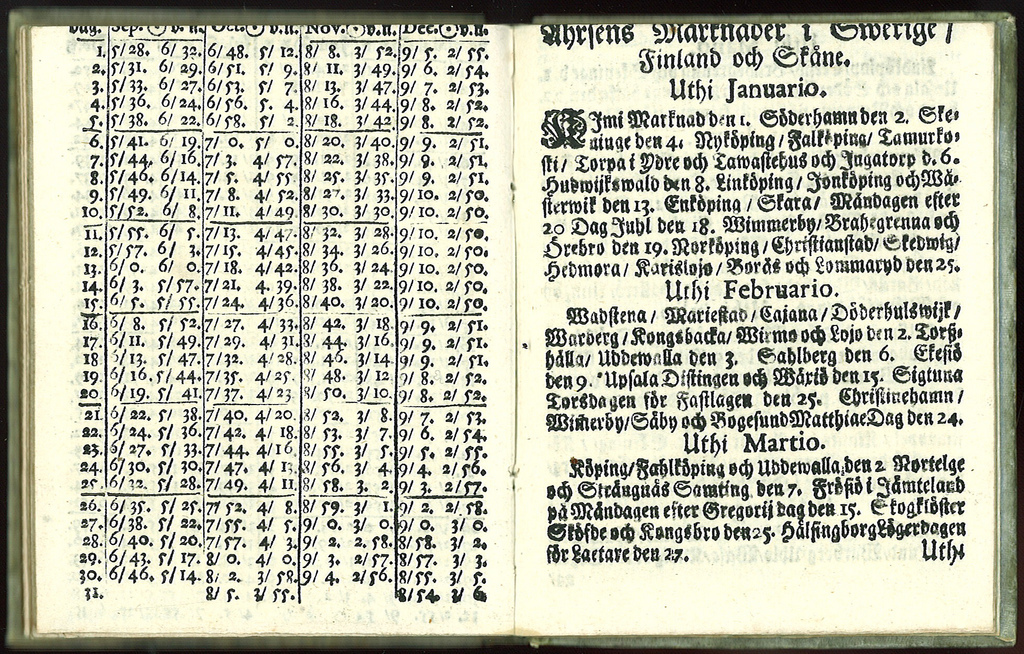 Dag. Sep. ☉ v.n. Oct. ☉ v.n. Nov. ☉ v.n. Dec. ☉ v.n.
1. 5/28. 6/32. 6/48. 5/12. 8/8. 3/52. 9/5. 2/55.
2. 5/31. 6/29. 6/51. 5/9. 8/11. 3/49. 9/6. 2/54.
3. 5/33. 6/27. 6/53. 5/7. 8/13. 3/47. 9/7. 2/53.
4. 5/36. 6/24. 6/56. 5/4. 8/16. 3/44. 9/8. 2/52.
5. 5/38. 6/22. 6/58. 5/2. 8/18. 3/42. 9/8. 2/52.
6. 5/41. 6/19. 7/0. 5/0. 8/20. 3/40. 9/9. 2/51.
7. 5/44. 6/16. 7/3. 4/57. 8/22. 3/38. 9/9. 2/51.
8. 5/46. 6/14. 7/5. 4/55. 8/25. 3/35. 9/9. 2/51.
9. 5/49. 6/11. 7/8. 4/52. 8/27. 3/33. 9/10. 2/50.
10. 5/52. 6/8. 7/11. 4/49. 8/30. 3/30. 9/10. 2/50.
11. 5/55. 6/5. 7/13. 4/47. 8/32. 3/28. 9/10. 2/50.
12. 5/57. 6/3. 7/15. 4/45. 8/34. 3/26. 9/10. 2/50.
13. 6/0. 6/0. 7/18. 4/42. 8/36. 3/24. 9/10. 2/50.
14. 6/3. 5/57. 7/21. 4.39. 8/38. 3/22. 9/10. 2/50.
15. 6/5. 5/55. 7/24. 4/36. 8/40. 3/20. 9/10. 2/50.
16. 6/8. 5/52. 7/27. 4/33. 8/42. 3/18. 9/9. 2/51.
17. 6/11. 5/49. 7/29. 4/31. 8/44. 3/16. 9/9. 2/51.
18. 6/13. 5/47. 7/32. 4/28. 8/46. 3/14. 9/9. 2/51.
19. 6/16. 5/44. 7/35. 4/25. 8/48. 3/12. 9/8. 2/52.
20. 6/19. 5/41. 7/37. 4/23. 8/50. 3/10. 9/8. 2/52.
21. 6/22. 5/38. 7/40. 4/20. 8/52. 3/8. 9/7. 2/53.
22. 6/24. 5/36. 7/42. 4/18. 8/53. 3/7. 9/6. 2/54.
23. 6/27. 5/33. 7/44. 4/16. 8/55. 3/5. 9/5. 2/55.
24. 6/30. 5/30. 7/47. 4/13. 8/56. 3/4. 9/4. 2/56.
25. 6/32. 5/28. 7/49. 4/11. 8/58. 3/2. 9/3. 2/57.
26. 6/35. 5/25. 7/52. 4/8. 8/59. 3/1. 9/2. 2/58.
27. 6/38. 5/22. 7/55. 4/5. 9/0. 3/0. 9/0. 3/0.
28. 6/40. 5/20. 7/57. 4/3. 9/2. 2.58. 8/58. 3/2.
29. 6/43. 5/17. 8/0. 4/0. 9/3. 2/57. 8/57. 3/3.
30. 6/46. 5/14. 8/2. 3/58. 9/4. 2/56. 8/55. 3/5.
31. 8/5. 3/55. 8/54. 3/6.
Ahrsens Marknader i Swerige/
Finland och Skåne.
Uthi Januario.
KJmi Marknad den 1. Söderhamn den 2. Ske-
ninge den 4. Nyköping/Falköping/Tamurko-
ski/Torpa i Ydre och Tawastehus och Ingatorp d. 6.
Hudwijkswald den 8. Linköping/Jonköping och Wä-
sterwik den 13. Enköping/Skara/Måndagen efter
20 Dag Juhl den 18. Wimmerby/Brahegrenna och
Örebro den 19. Norköping/Christianstad/Skedwig/
Hedmora/Karislojo/Borås och Lommaryd den 25.
Uthi Februario.
Wadstena/Mariestad/Cajana/Döderhulswijk/
Warberg/Kongsbacka/Wirmo och Lojo den 2. Torß-
hälla/Uddewalla den 3. Sahlberg den 6. Ekesiö
den 9. Upsala Distingen och Wäxiö den 15. Sigtuna
Torsdagen för Fastlagen den 25. Christinehamn/
Wimerby/Säby och Bogesund Matthiæ Dag den 24.
Uthi Martio.
Köping/Fahlköping och Uddewalla den 2 Nortelge
och Strängnäs Samting den 7. Frösiö i Jämteland
på Måndagen efter Gregorij dag den 15. Skogklöster
Sköfde och Kongsbro den 25. Hälsingborg Lögerdagen
för Laetare den 27. Uthi